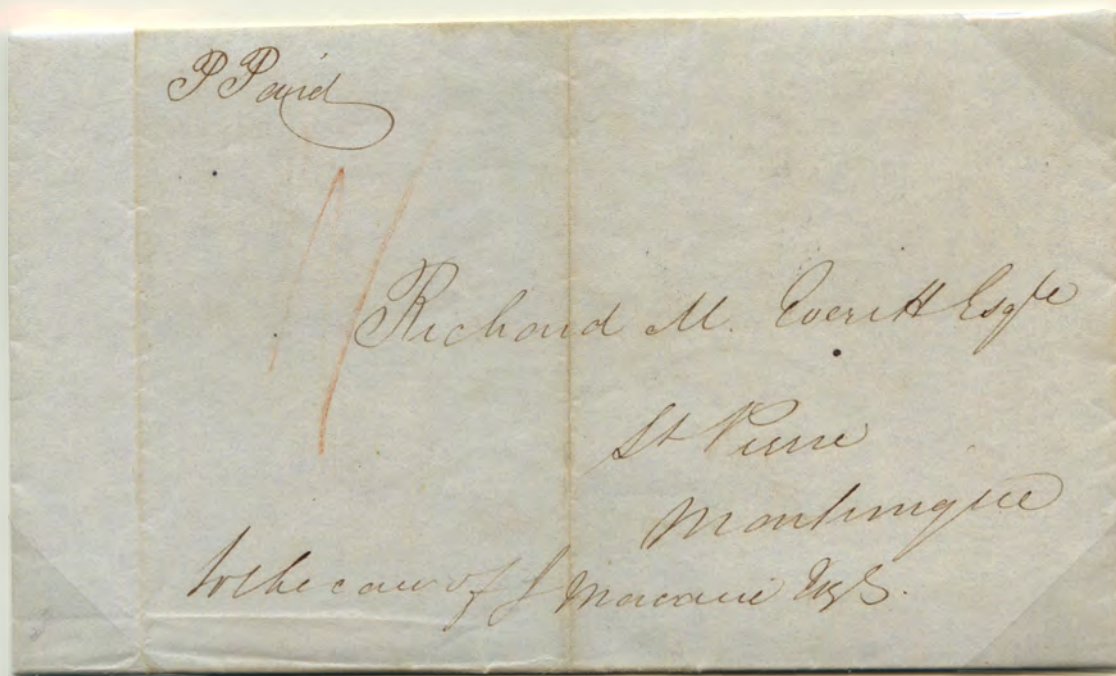 P Paid
Richard M. Everitt Esqre
St Pierre
Martinique
to the care of J Macaui Esq